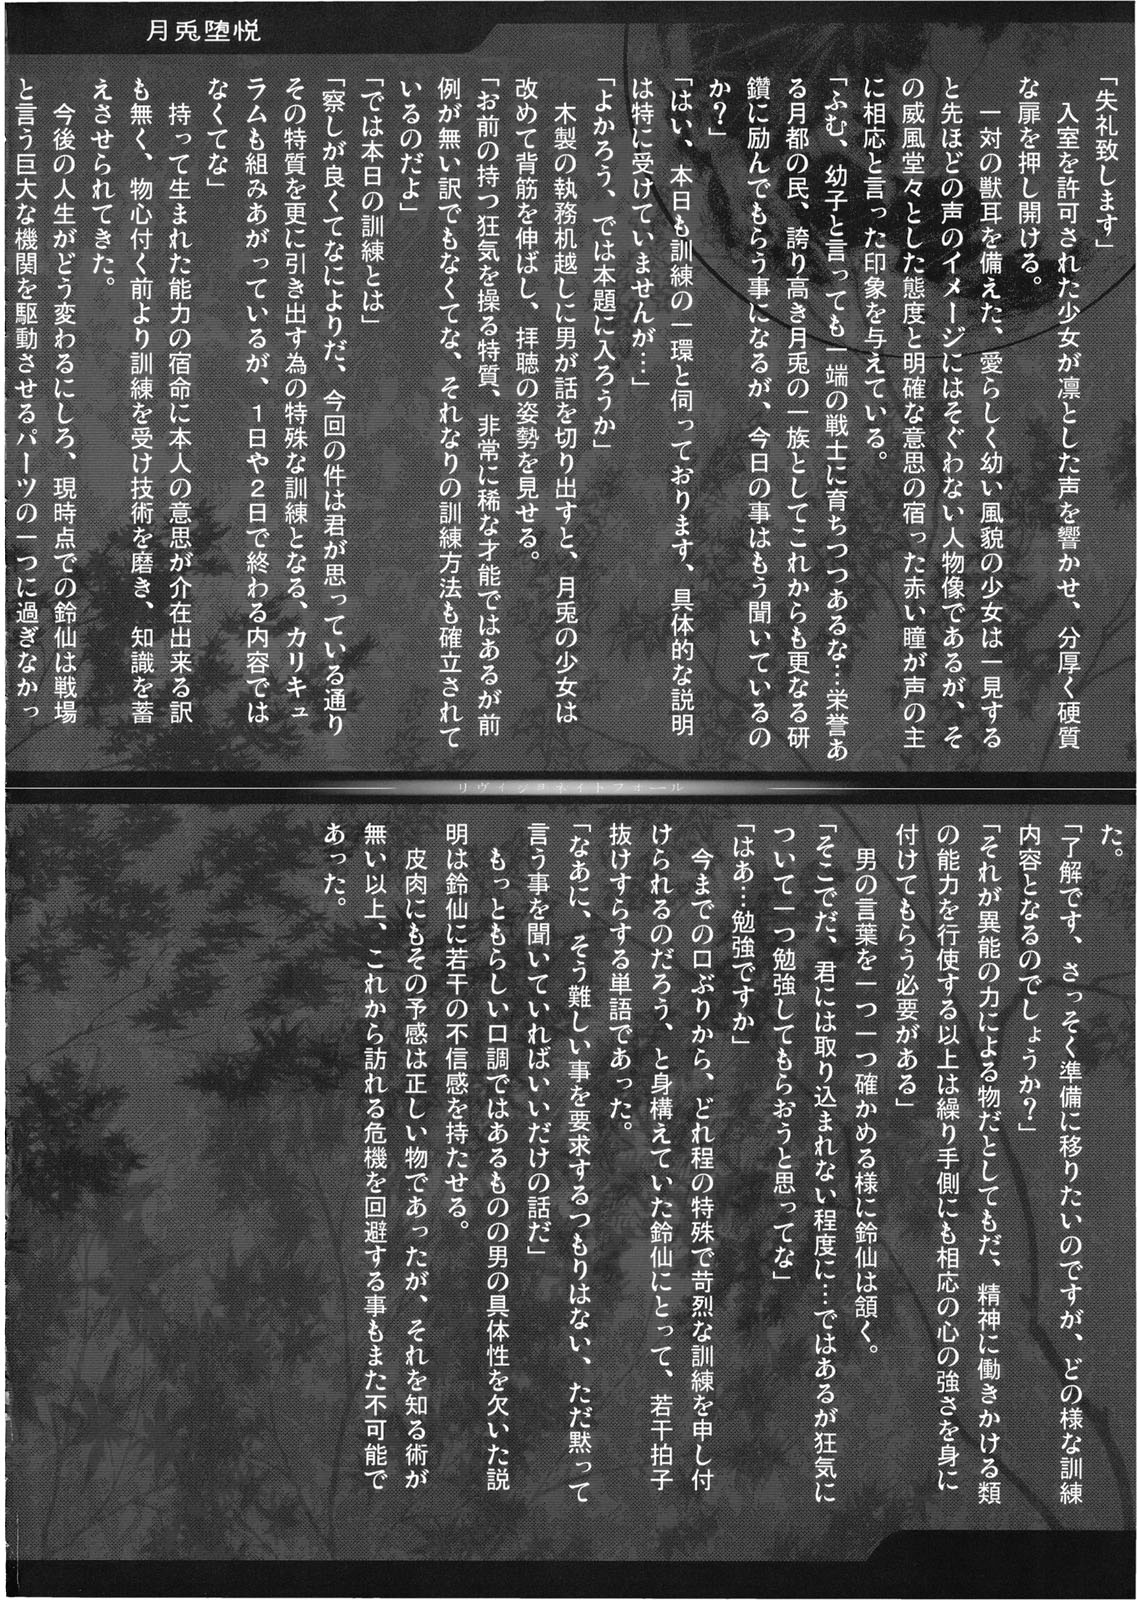 月兎堕悦
「失礼致します」
入室を許可された少女が凛とした声を響かせ、分厚く硬質
な扉を押し開ける。
一対の獣耳を備えた、愛らしく幼い風貌の少女は一見する
と先ほどの声のイメージにはそぐわない人物像であるが、そ
の威風堂々とした態度と明確な意思の宿った赤い瞳が声の主
に相応と言った印象を与えている。
「ふむ、幼子と言っても一端の戦士に育ちつつあるな…栄誉あ
る月都の民、誇り高き月兎の一族としてこれからも更なる研
鑽に励んでもらう事になるが、今日の事はもう聞いているの
か？」
「はい、本日も訓練の一環と伺っております、具体的な説明
は特に受けていませんが…」
「よかろう、では本題に入ろうか」
木製の執務机越しに男が話を切り出すと、月兎の少女は
改めて背筋を伸ばし、拝聴の姿勢を見せる。
「お前の持つ狂気を操る特質、非常に稀な才能ではあるが前
例が無い訳でもなくてな、それなりの訓練方法も確立されて
いるのだよ」
「では本日の訓練とは」
「察しが良くてなによりだ、今回の件は君が思っている通り
その特質を更に引き出す為の特殊な訓練となる、カリキュ
ラムも組みあがっているが、１日や２日で終わる内容では
なくてな」
持って生まれた能力の宿命に本人の意思が介在出来る訳
も無く、物心付く前より訓練を受け技術を磨き、知識を蓄
えさせられてきた。
今後の人生がどう変わるにしろ、現時点での鈴仙は戦場
と言う巨大な機関を駆動させるパーツの一つに過ぎなかっ
リヴィジョネイトフォール
た。
「了解です、さっそく準備に移りたいのですが、どの様な訓練
内容となるのでしょうか？」
「それが異能の力による物だとしてもだ、精神に働きかける類
の能力を行使する以上は繰り手側にも相応の心の強さを身に
付けてもらう必要がある」
男の言葉を一つ一つ確かめる様に鈴仙は頷く。
「そこでだ、君には取り込まれない程度に…ではあるが狂気に
ついて一つ勉強してもらおうと思ってな」
「はあ…勉強ですか」
今までの口ぶりから、どれ程の特殊で苛烈な訓練を申し付
けられるのだろう、と身構えていた鈴仙にとって、若干拍子
抜けすらする単語であった。
「なあに、そう難しい事を要求するつもりはない、ただ黙って
言う事を聞いていればいいだけの話だ」
もっともらしい口調ではあるものの男の具体性を欠いた説
明は鈴仙に若干の不信感を持たせる。
皮肉にもその予感は正しい物であったが、それを知る術が
無い以上、これから訪れる危機を回避する事もまた不可能で
あった。